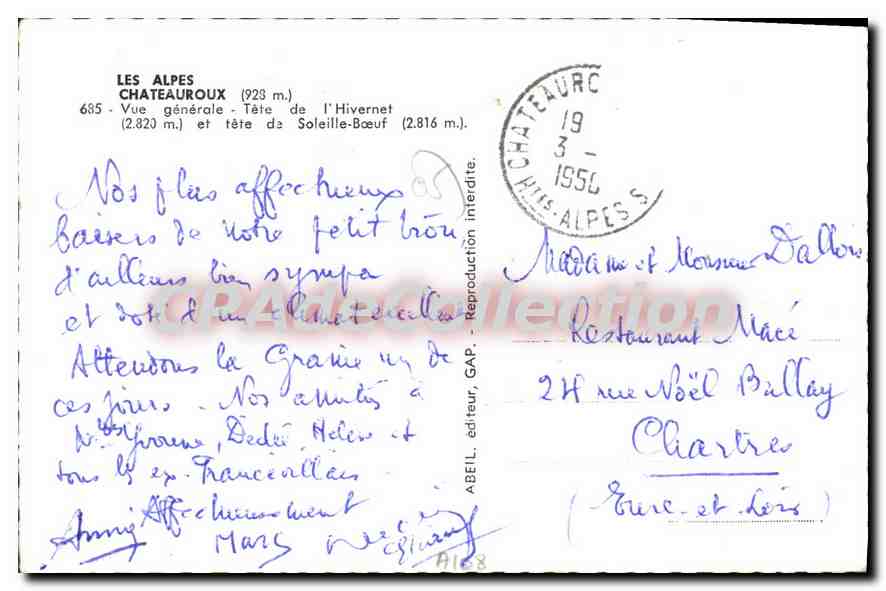 LES ALPES
CHATEAUROUX (928 m.)
685 - Vue générale - Tête de l'Hivernet
(2.820 m.) et tête de Soleille-Bœuf (2.816 m.).
Nos plus affectueux
baisers de notre petit trou,
d'ailleurs bien sympa
et doté d'un climat excellent
Attendons la Gramie un de
ces jours. Nos amitiés à
Yvonne, Dédée, Helene et
tous les ex-Francevillais.
Affectueusement
Annie Marc
ABEIL, éditeur, GAP. - Reproduction interdite.
CHATEAURO
19
3 -
1956
HTES-ALPES
Madame et Monsieur Dallois
Restaurant Macé
24 rue Noël Ballay
Chartres
(Eure-et-Loir)
A168
CPAdeCollection